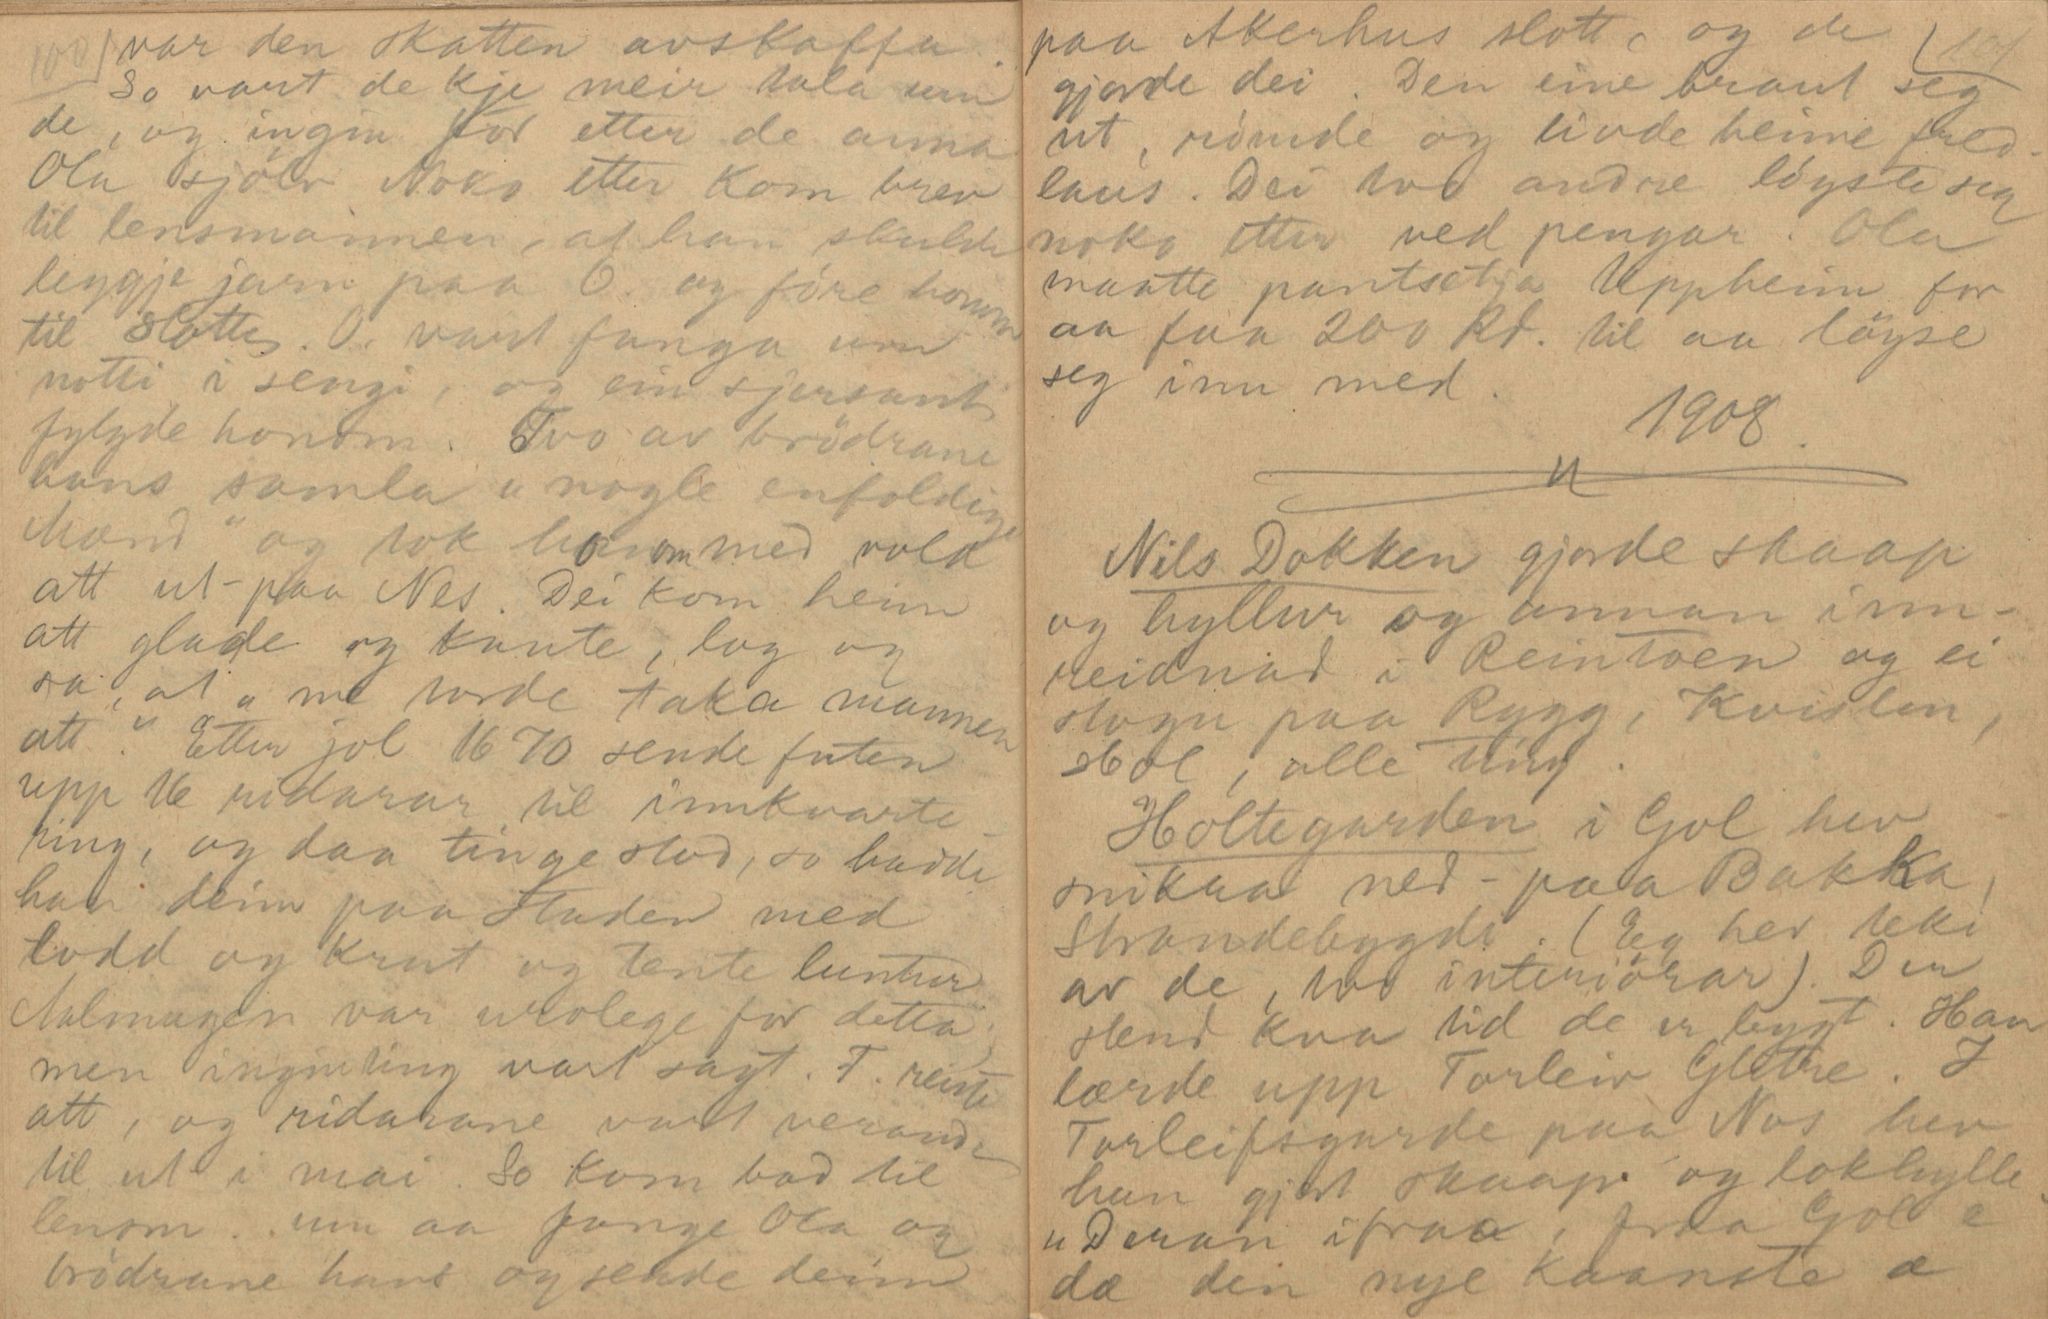 100
var den skatten avskaffa.
So vart de kje meir tala um
de, og ingin for etter de anna
Ola sjölv. Noko etter kom brev
til lensmannen, at han skulde
leggje jarn paa O. og före honom
til Slotte. O. vart fanga um
notti i sengi, og ein sjersant
fylgde honom. Tvo av brödrane
hans samla „nogle enfoldige
Mænd" og tok honom med vold
att ut-paa Nes. Dei kom heim
att glade og kaute, log og
sa, at „me torde taka mannen
att." Etter jol 1670 sende futen
upp 16 ridarar til innkvarte-
ring, og daa tinge stod, so hadde
han deim paa Staden med
lodd og krut og tente luntur
Aalmugen var urolege for detta,
men ingin ting vart sagt. F. reiste
att, og ridarane vart verande
til ut i mai. So kom bod til
lensm. um aa fange Ola og
brödrane hans og sende deim
paa Akerhus slott, og de
101
gjorde dei. Den eine braut seg
ut, römde og livde heime fred-
laus. Dei tvo andre löyste seg
noko etter ved pengar. Ola
maatte pantsetja Uppheim for
aa faa 200 Rd. til aa löyse
seg inn med.
1908.
Nils Dokken gjorde skaap
og hyllur og annan inn-
reidnad i Reintoen og ei
stogu paa Rygg, Kvislen,
Hol, alle ting.
Holtegarden i Gol hev
snikra ned-paa Bakka,
Strandebygdi. (Eg hev teki
av de, tvo interiörar). Der
stend kva tid de er bygt. Han
lærde upp Torleiv Gletre. I
Torleifsgarde paa Nos hev
han gjort skaap og lokhylle.
„Deran ifraa, fraa Gol e
dæ den nye kaanste æ